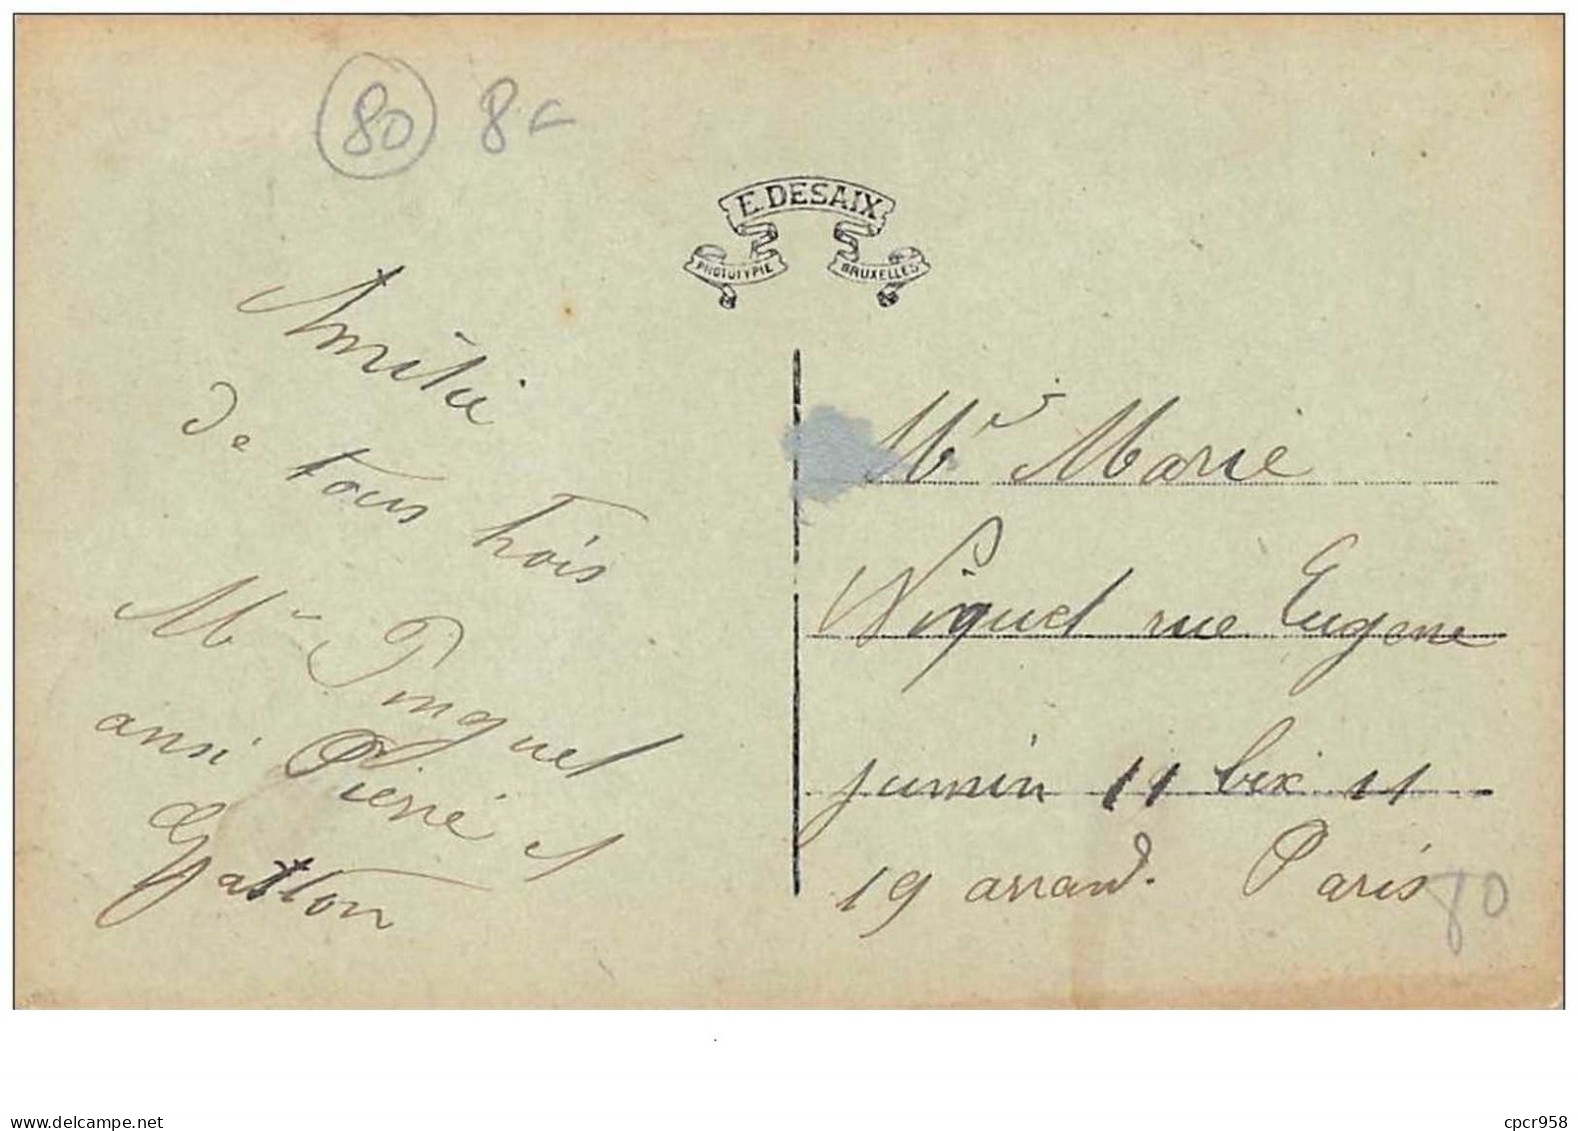 80 8€
E. DESAIX
PHOTOTYPIE BRUXELLES
Amitié
de tous trois
Mme Pinquet
ansi Pierre et
Gaston
Mr Marie
Niquet rue Eugene
jumin 11 bix 11
19 arrand. Paris
80
www.delcampe.net
cpcr958